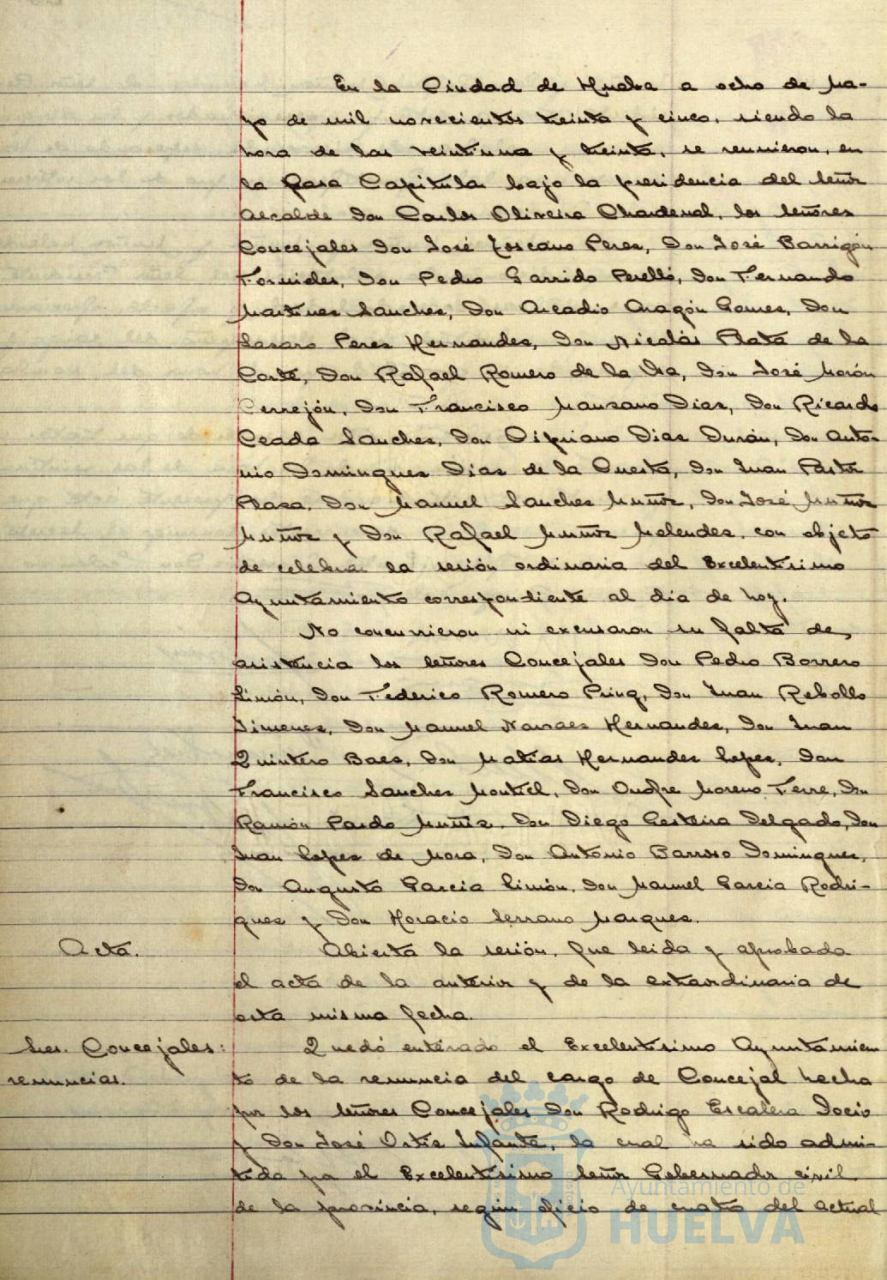 En la Ciudad de Huelva a ocho de Ma-
yo de mil novecientos treinta y cinco, siendo la
hora de las veintiuna y treinta, se reunieron, en
la Casa Capitular bajo la presidencia del Señor
Alcalde Don Carlos Oliveira Chardenal, los Señores
Concejales Don José Toscano Peres, Don José Barrigón
Fornides, Don Pedro Garrido Perelló, Don Fernando
Martines Sanches, Don Arcadio Aragón Gomes, Don
Lasaro Peres Hernandes, Don Nicolás Plata de la
Corte, Don Rafael Romero de la Isa, Don José Morón
Cerrejón, Don Francisco Mansano Dias, Don Ricardo
Ceada Sanches, Don Cipriano Dias Durán, Don Anto-
nio Domingues Dias de la Cuesta, Don Juan Pastor
Plasa, Don Manuel Sanches Muños, Don José Muños
Muños y Don Rafael Muños Melendes, con objeto
de celebrar la sesión ordinaria del Excelentisimo
Ayuntamiento correspondiente al dia de hoy.
No concurrieron ni excusaron su falta de
asistencia los Señores Concejales Don Pedro Borrero
Limón, Don Federico Romero Prinq, Don Juan Rebollo
Jimenes, Don Manuel Narvaes Hernandes, Don Juan
Quintero Baes, Don Matias Hernandes Lopes, Don
Francisco Sanches Montiel, Don Onofre Moreno Ferre, Don
Ramón Pardo Muñis, Don Diego Gesteira Delgado, Don
Juan Lopes de Mora, Don Antonio Barroso Domingues,
Don Augusto Garcia Limón, Don Manuel Garcia Rodri-
gues y Don Horacio Serrano Marques.
Acta.
Abierta la sesión, fue leida y aprobada
el acta de la anterior y de la extraordinaria de
esta misma fecha.
Sres. Concejales:
renuncias.
Quedó enterado el Excelentisimo Ayuntamien
to de la renuncia del cargo de Concejal hecha
por los Señores Concejales Don Rodrigo Escalera Docio
y Don José Ortis Infante, la cual ha sido admi-
tida por el Excelentisimo Señor Gobernador civil
de la provincia, según oficio de cuatro del actual
Ayuntamiento de
HUELVA